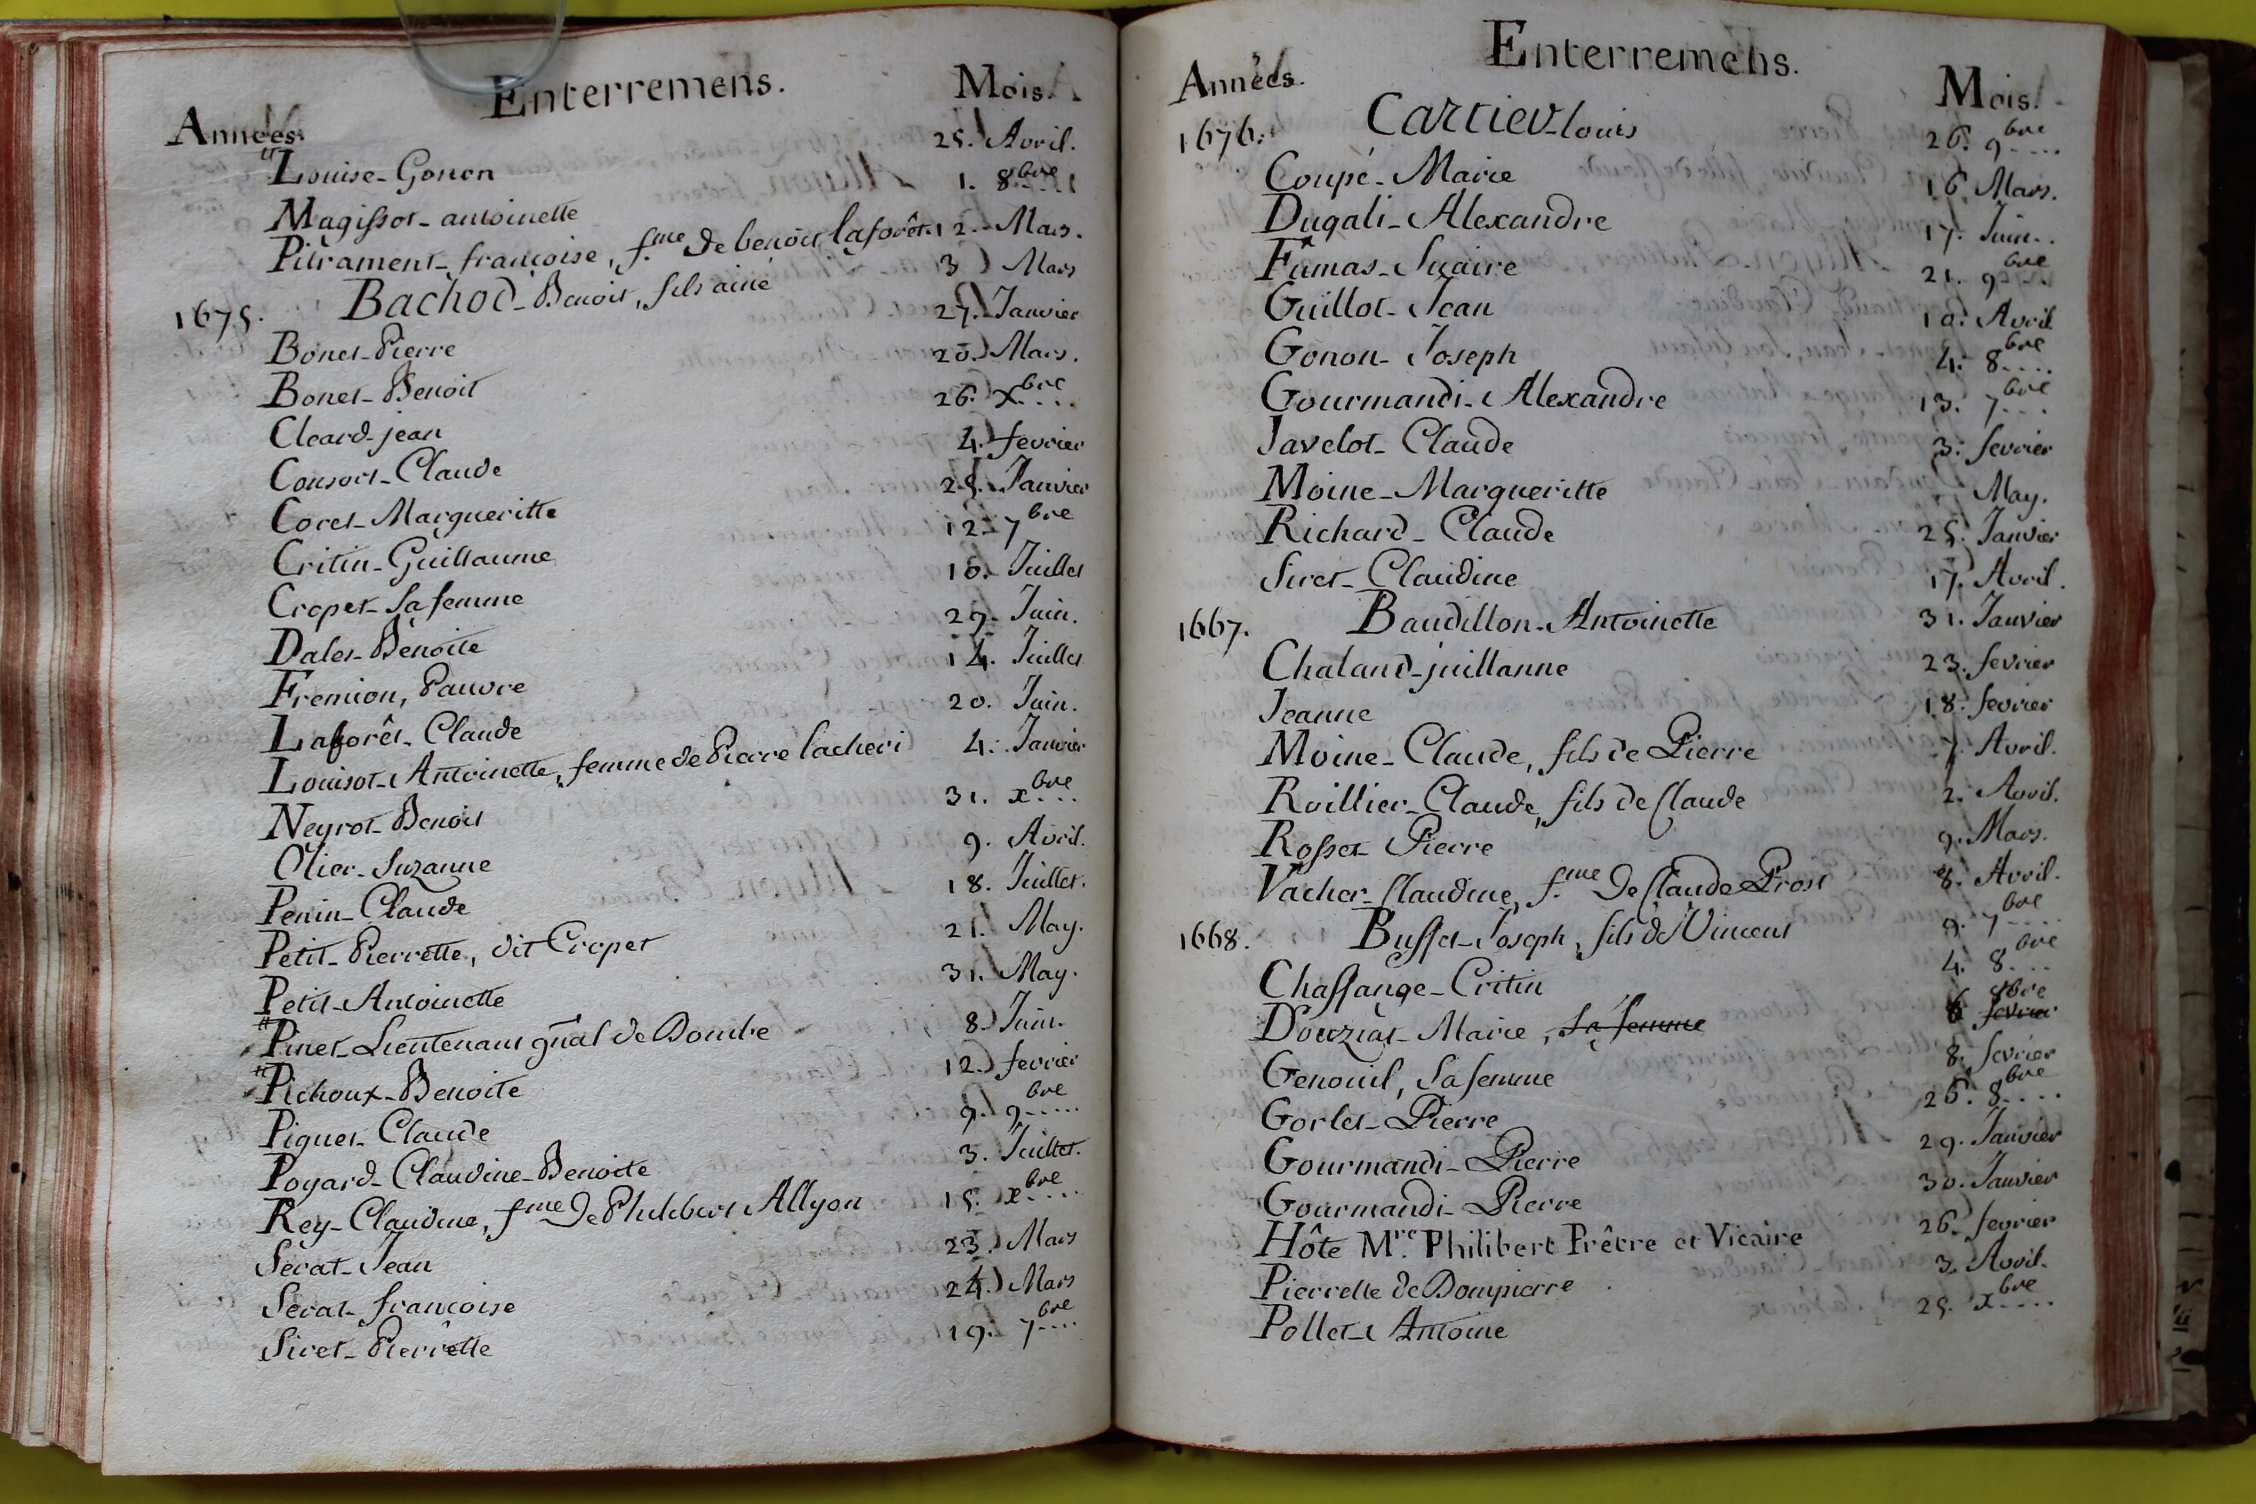 Enterremens.
Années. Mois.
Louise - Gonon 25. Avril.
Magissot - antoinette 1. 8bre
Pitrament - francoise, fme de benoit laforêt. 12. Mars.
1675. Bachod - Benoit, fils ainé 3 Mars
Bonet - Pierre 27. Janvier
Bonet - Benoit 20. Mars.
Cleard - jean 26. xbre
Consort - Claude 4. fevrier
Coret - Margueritte 25. Janvier
Critin - Guillaume 12. 7bre
Cropet - Sa femme 16. Juillet
Dalet - Benoite 29. Juin.
Fremion, Pauvre 14. Juillet
Laforêt - Claude 20. Juin.
Louisot - Antoinette, femme de Pierre lacheri 4. Janvier
Neyrot - Benoit 31. xbre
Olier - Suzanne 9. Avril.
Penin - Claude 18. Juillet.
Petit - Pierrette, dit Cropet 21. May.
Petit - Antoinette 31. May.
Pinet - Lieutenant gñal de Dombe 8. Juin.
Pichoux - Benoite 12. fevrier
Piquet - Claude 9. 9bre
Poyard - Claudine - Benoite 3. Juillet.
Rey - Claudine, fme De Philibert Allyon 15. xbre
Serat - Jean 23. Mars
Serat - francoise 24. Mars
Siret - Pierrette 19. 7bre
Enterremens.
Années. Mois.
1676. Cartier - louis 26. 9bre
Coupé - Marie 16. Mars.
Dugali - Alexandre 17. Juin.
Fumas - Suaire 21. 9bre
Guillot - Jean 10. Avril
Gonon - Joseph 4. 8bre
Gourmandi - Alexandre 13. 7bre
Javelot - Claude 3. fevrier
Moine - Margueritte May.
Richard - Claude 25. Janvier
Siret - Claudine 17. Avril.
1667. Baudillon - Antoinette 31. Janvier
Chaland - juillanne 23. fevrier
Jeanne 18. fevrier
Moine - Claude, fils de Pierre 7. Avril.
Roillier - Claude, fils de Claude 2. Avril.
Rosset - Pierre 9. Mars.
Vacher - Claudine, fme De Claude Prost 8. Avril.
1668. Buffet - Joseph, fils de Vincent 9. 7bre
Chassange - Critin 4. 8bre
Douziat - Marie, Sa femme 6 8bre fevrier
Genouil, Sa femme 8. fevrier
Gorlet - Pierre 26. 8bre
Gourmandi - Pierre 29. Janvier
Gourmandi - Pierre 30. Janvier
Hôte Mre. Philibert Prêtre et Vicaire 26. fevrier
Pierrette de Dompierre 3. Avril.
Pollet - Antoine 25. xbre